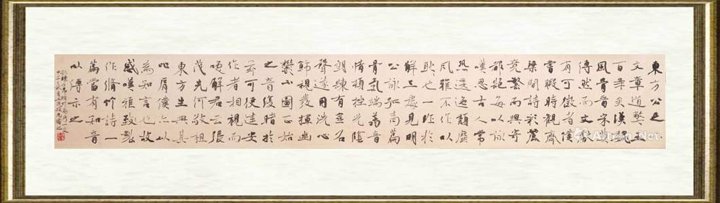 東方公足下
文章道弊五
百年矣漢魏
風骨晉宋莫
傳然而文獻
有可徵者僕
嘗暇時觀齊
梁間詩彩麗
競繁而興寄
都絕每以永
歎思古人常
恐逶迤頹靡
風雅不作以
耿耿也一昨於
解三處見明
公詠孤桐篇
骨氣端翔音
情頓挫光英
朗練有金石
聲遂用洗心
飾視發揮幽
鬱不圖正始
之音復睹於
茲可使建安
作者相視而
笑解君云張
茂先何敬祖
東方生與其
比肩僕亦以
為知言也故
感嘆雅製
作修竹詩一
篇當有知音
以傳示之